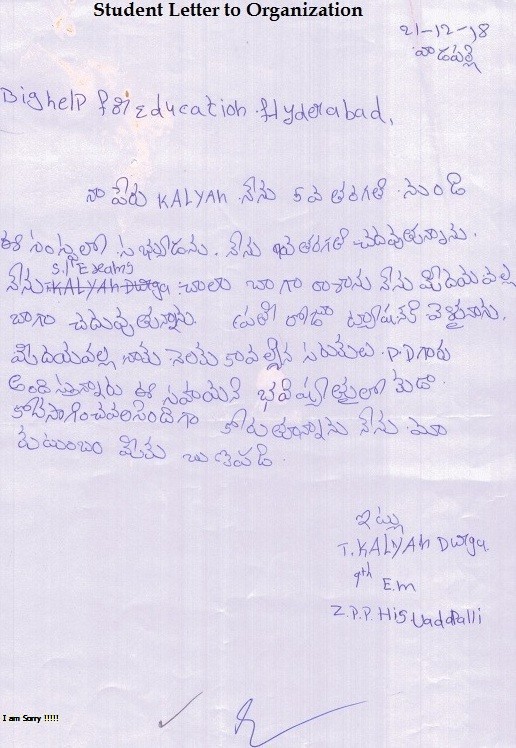 Student Letter to Organization
21-12-18
వాడపల్లి
Bighelp for Education Hyderabad,
నా పేరు KALYAN నేను 5వ తరగతి నుండి
ఈ సంస్థలో సభ్యుడను. నేను 9వ తరగతి చదువుతున్నాను.
S.A Exams
నేను KALYAN Durga చాలా బాగా రాశాను నేను మీదయవల్ల
బాగా చదువుతున్నాను. ప్రతీ రోజూ ట్యూషన్ కి వెళ్తున్నాను.
మీదయవల్ల నాకు కావల్సిన P.D గారు
అందిస్తున్నారు ఈ సహాయాన్ని భవిష్యత్తులో కూడా
కొనసాగించవలసిందిగా కోరుతున్నాను నేను మా
కుటుంబం మీకు
ఇట్లు
T. KALYAN Durga
9th E.m
Z.P.P. HiS Vadapalli
I am Sorry !!!!!